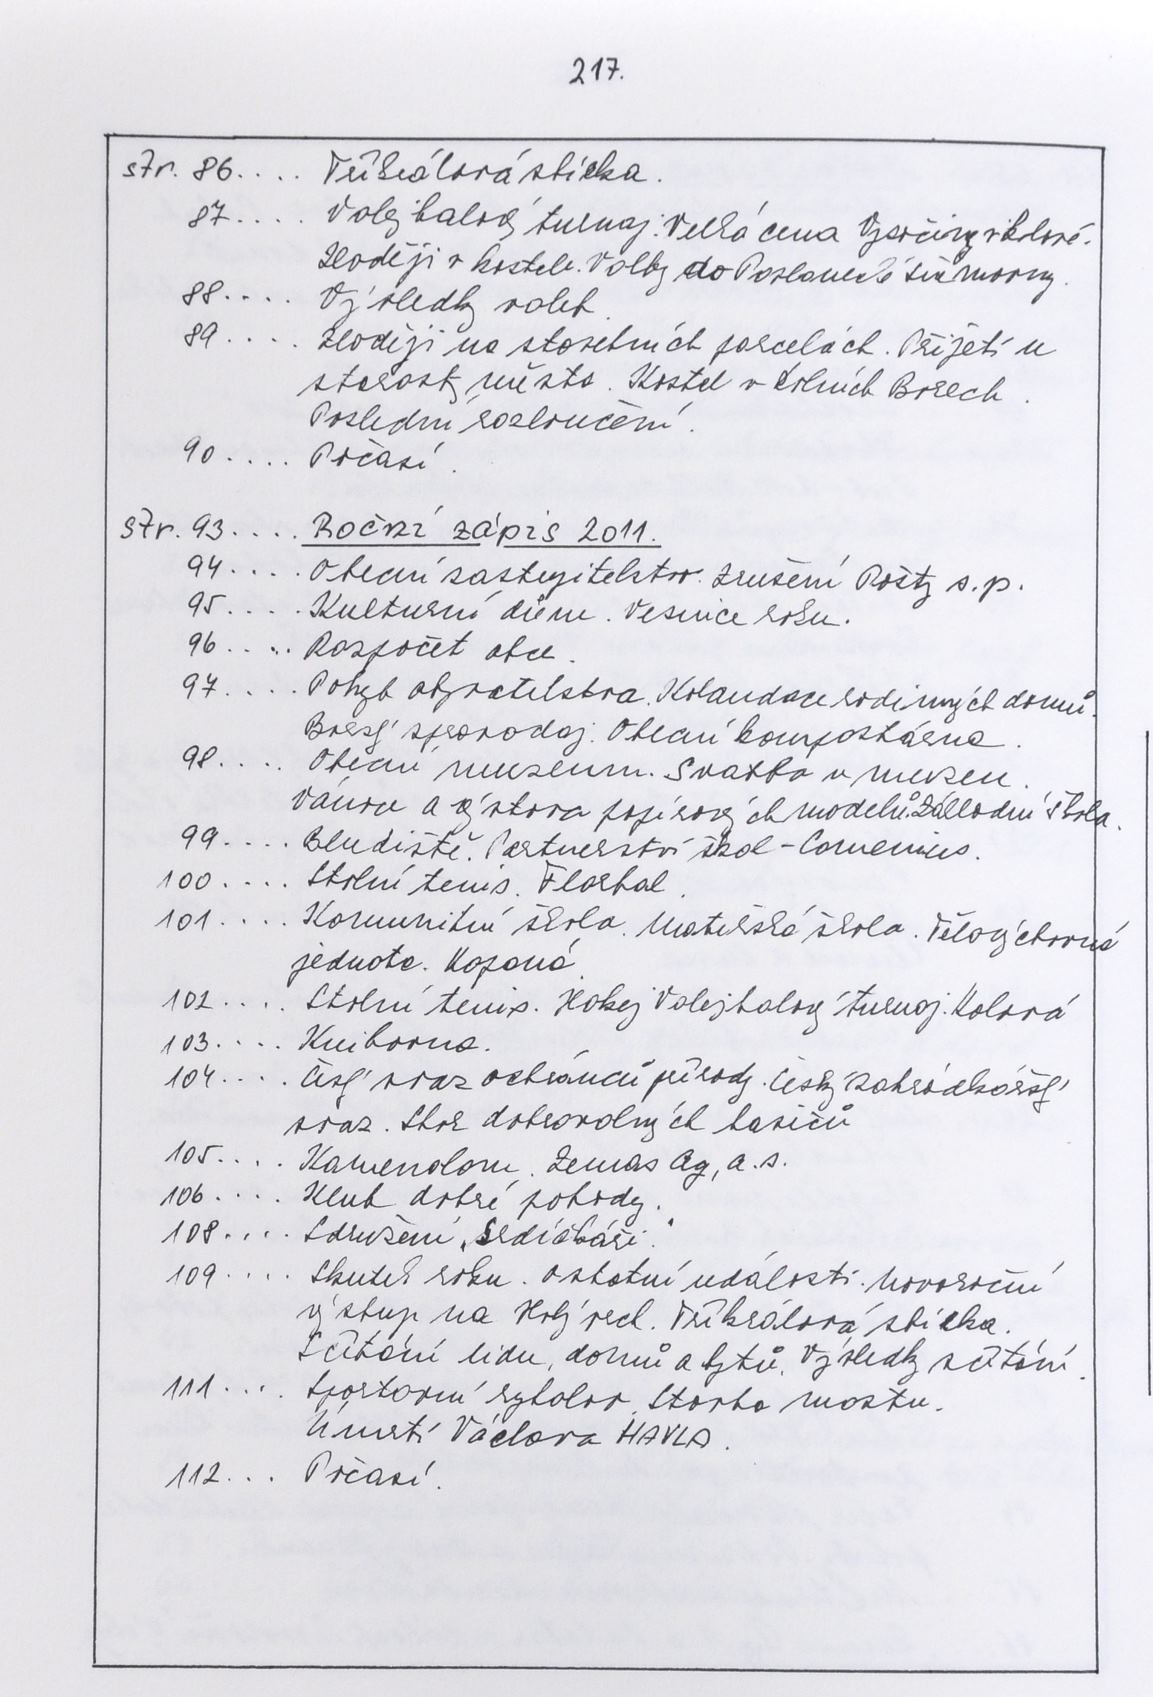 217.
str. 86.... Tříkrálová sbírka.
87.... Volejbalový turnaj. Velká cena Vysočiny v kolové.
Zloději v kostele. Volby do Poslanecké sněmovny.
88.... Výsledky voleb.
89.... Zloději na stavebních parcelách. Přijetí u
starosty města. Kostel v Dolních Borech.
Poslední rozloučení.
90.... Počasí.
str. 93.... Roční zápis 2011.
94.... Obecní zastupitelstvo. Zrušení Pošty s.p.
95.... Kulturní dům. Vesnice roku.
96.... Rozpočet obce.
97.... Pohyb obyvatelstva. Kolaudace rodinných domů.
Borský zpravodaj. Obecní kompostárna.
98.... Obecní muzeum. Svatba v muzeu.
Vánoce a výstava papírových modelů. Základní škola.
99.... Bludiště. Partnerství škol - Comenius.
100.... Stolní tenis. Florbal.
101.... Komunitní škola. Mateřská škola. Tělovýchovná
jednota. Kopaná.
102.... Stolní tenis. Hokej Volejbalový turnaj. Kolová
103.... Knihovna.
104.... Český svaz ochránců přírody. Český zahrádkářský
svaz. Sbor dobrovolných hasičů
105.... Kamenolom. Zemas Ag, a.s.
106.... Klub dobré pohody.
108.... Sdružení „Srdíčkáři."
109.... Skutek roku. Ostatní události. Novoroční
výstup na Holý vrch. Tříkrálová sbírka.
Sčítání lidu, domů a bytů. Výsledky sčítání.
111.... Sportovní rybolov. Stavba mostu.
Úmrtí Václava HAVLA.
112... Počasí.